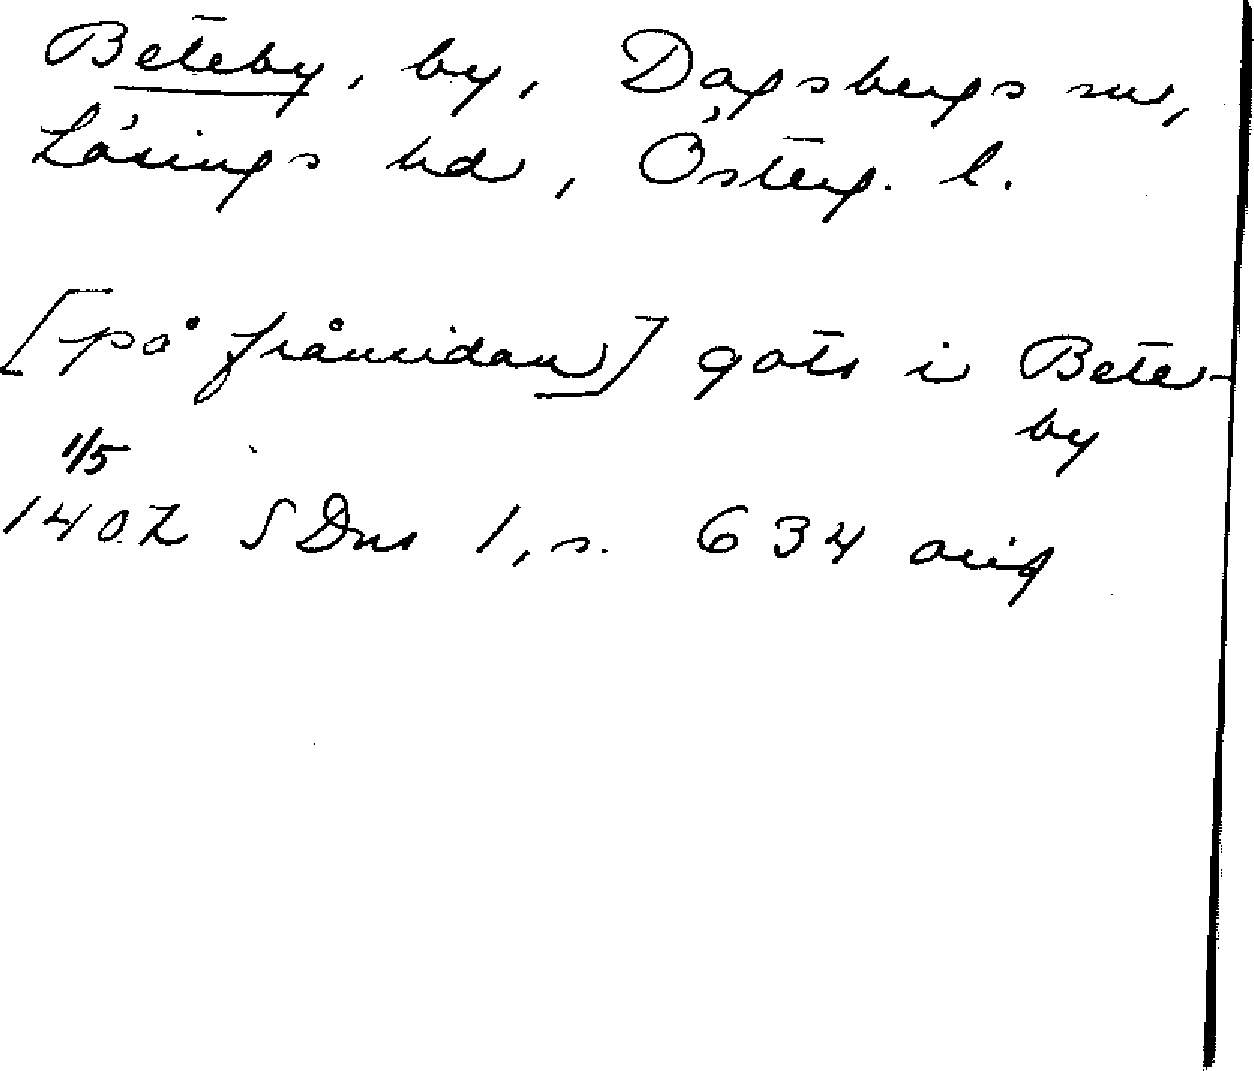 Beteby, by, Dagsbergs sn,
Lösings hd, Österg. l.
[på frånsidan] gotz i Bete-
by
1/5
1402 SDns 1, s. 634 orig